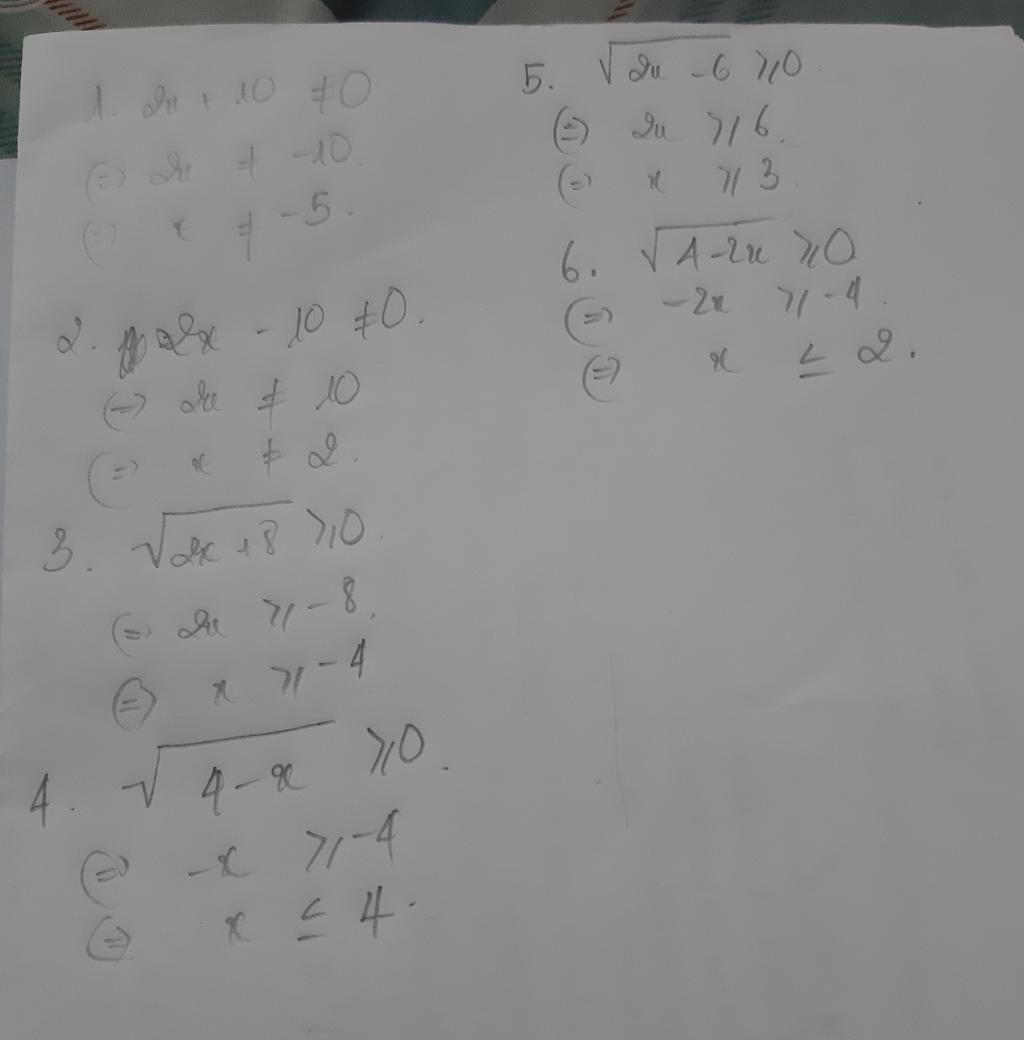 1. 2x + 10 ≠ 0
(=) 2x ≠ -10.
(=) x ≠ -5.
2. 2x - 10 ≠ 0.
(=) 2x ≠ 10
(=) x ≠ 2.
3. √(2x + 8) ⩾ 0.
(=) 2x ⩾ -8.
(=) x ⩾ -4
4. √(4 - x) ⩾ 0.
(=) -x ⩾ -4
(=) x ≤ 4.
5. √(2x - 6) ⩾ 0.
(=) 2x ⩾ 6.
(=) x ⩾ 3.
6. √(4 - 2x) ⩾ 0
(=) -2x ⩾ -4.
(=) x ≤ 2.